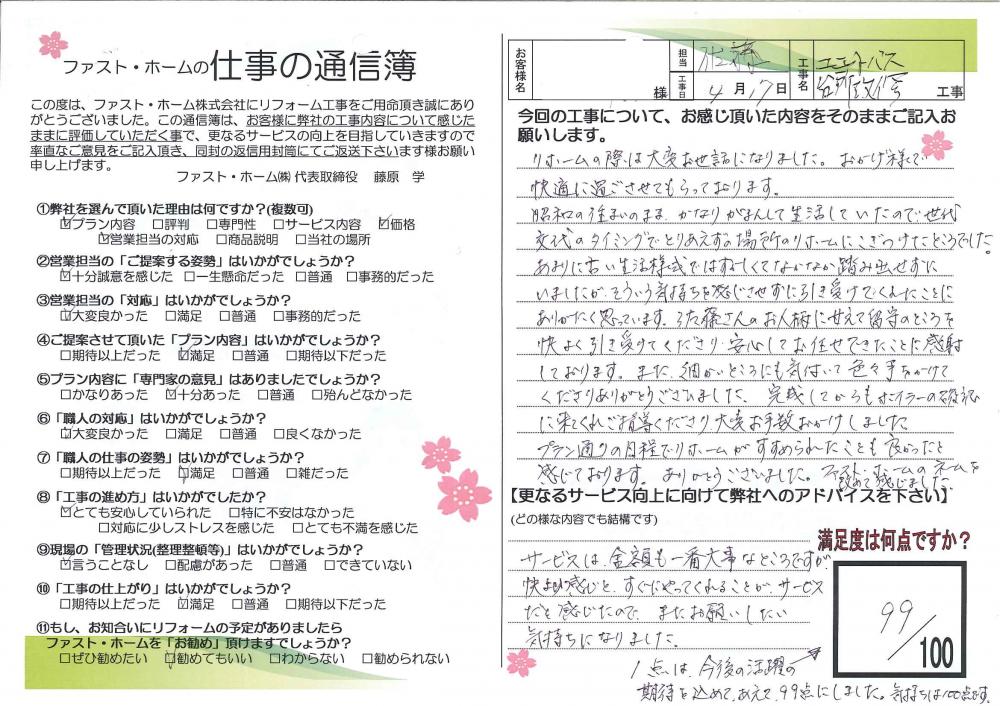 ファスト・ホームの仕事の通信簿
この度は、ファスト・ホーム株式会社にリフォーム工事をご用命頂き誠にあり
がとうございました。この通信簿は、お客様に弊社の工事内容について感じた
ままに評価していただく事で、更なるサービスの向上を目指していきますので
率直なご意見をご記入頂き、同封の返信用封筒にてご返送下さいます様お願い
申し上げます。
ファスト・ホーム㈱ 代表取締役 藤原 学
①弊社を選んで頂いた理由は何ですか?(複数可)
☑プラン内容 □評判 □専門性 □サービス内容 ☑価格
☑営業担当の対応 □商品説明 □当社の場所
②営業担当の「ご提案する姿勢」はいかがでしょうか?
☑十分誠意を感じた □一生懸命だった □普通 □事務的だった
③営業担当の「対応」はいかがでしょうか?
☑大変良かった □満足 □普通 □事務的だった
④ご提案させて頂いた「プラン内容」はいかがでしょうか?
□期待以上だった ☑満足 □普通 □期待以下だった
⑤プラン内容に「専門家の意見」はありましたでしょうか?
□かなりあった ☑十分あった □普通 □殆んどなかった
⑥「職人の対応」はいかがでしょうか?
☑大変良かった □満足 □普通 □良くなかった
⑦「職人の仕事の姿勢」はいかがでしょうか?
□期待以上だった ☑満足 □普通 □雑だった
⑧「工事の進め方」はいかがでしたか?
☑とても安心していられた □特に不安はなかった
□対応に少しストレスを感じた □とても不満を感じた
⑨現場の「管理状況(整理整頓等)」はいかがでしょうか?
☑言うことなし □配慮があった □普通 □できていない
⑩「工事の仕上がり」はいかがでしょうか?
□期待以上だった ☑満足 □普通 □期待以下だった
⑪もし、お知合いにリフォームの予定がありましたら
ファスト・ホームを「お勧め」頂けますでしょうか?
□ぜひ勧めたい ☑勧めてもいい □わからない □勧められない
お客様名 様 担当 佐藤 工事日 4月17日 工事名 エコ バス 台所改修 工事
今回の工事について、お感じ頂いた内容をそのままご記入お
願いします。
リホームの際は大変お世話になりました。おかげ様で
快適に過ごさせてもらっております。
昭和の住まいのまま、かなりがまんして生活していたので世代
交代のタイミングでとりあえずの場所のリホームにこぎつけたところでした。
あまりに古い生活様式ではずかしくてなかなか踏み出せずに
いましたが、そういう気持ちを感じさせずに引き受けてくれたことに
ありがたく思っています。佐藤さんのお人柄に甘えて留守のところを
快よく引き受けてくださり、安心してお任せできたことに感謝
しております。また、細かいところにも気付いて色々手をかけて
くださりありがとうございました。完成してからもボイラーの確認
に来てくれご指導くださり大変お手数おかけしました
プラン通りの日程でリホームがすすめられたことも良かったと
感じております。ありがとうございました。ファスト・ホームのネームを
改めて感じました。
【更なるサービス向上に向けて弊社へのアドバイスを下さい】
(どの様な内容でも結構です)
満足度は何点ですか?
サービスは、金額も一番大事なところですが
快よい感じと、すぐにやってくれることが、サービス
だと感じたので、またお願いしたい
気持ちになりました。
99/100
1点は、今後の活躍の
期待を込めて、あえて、99点にしました。気持ちは100点です。